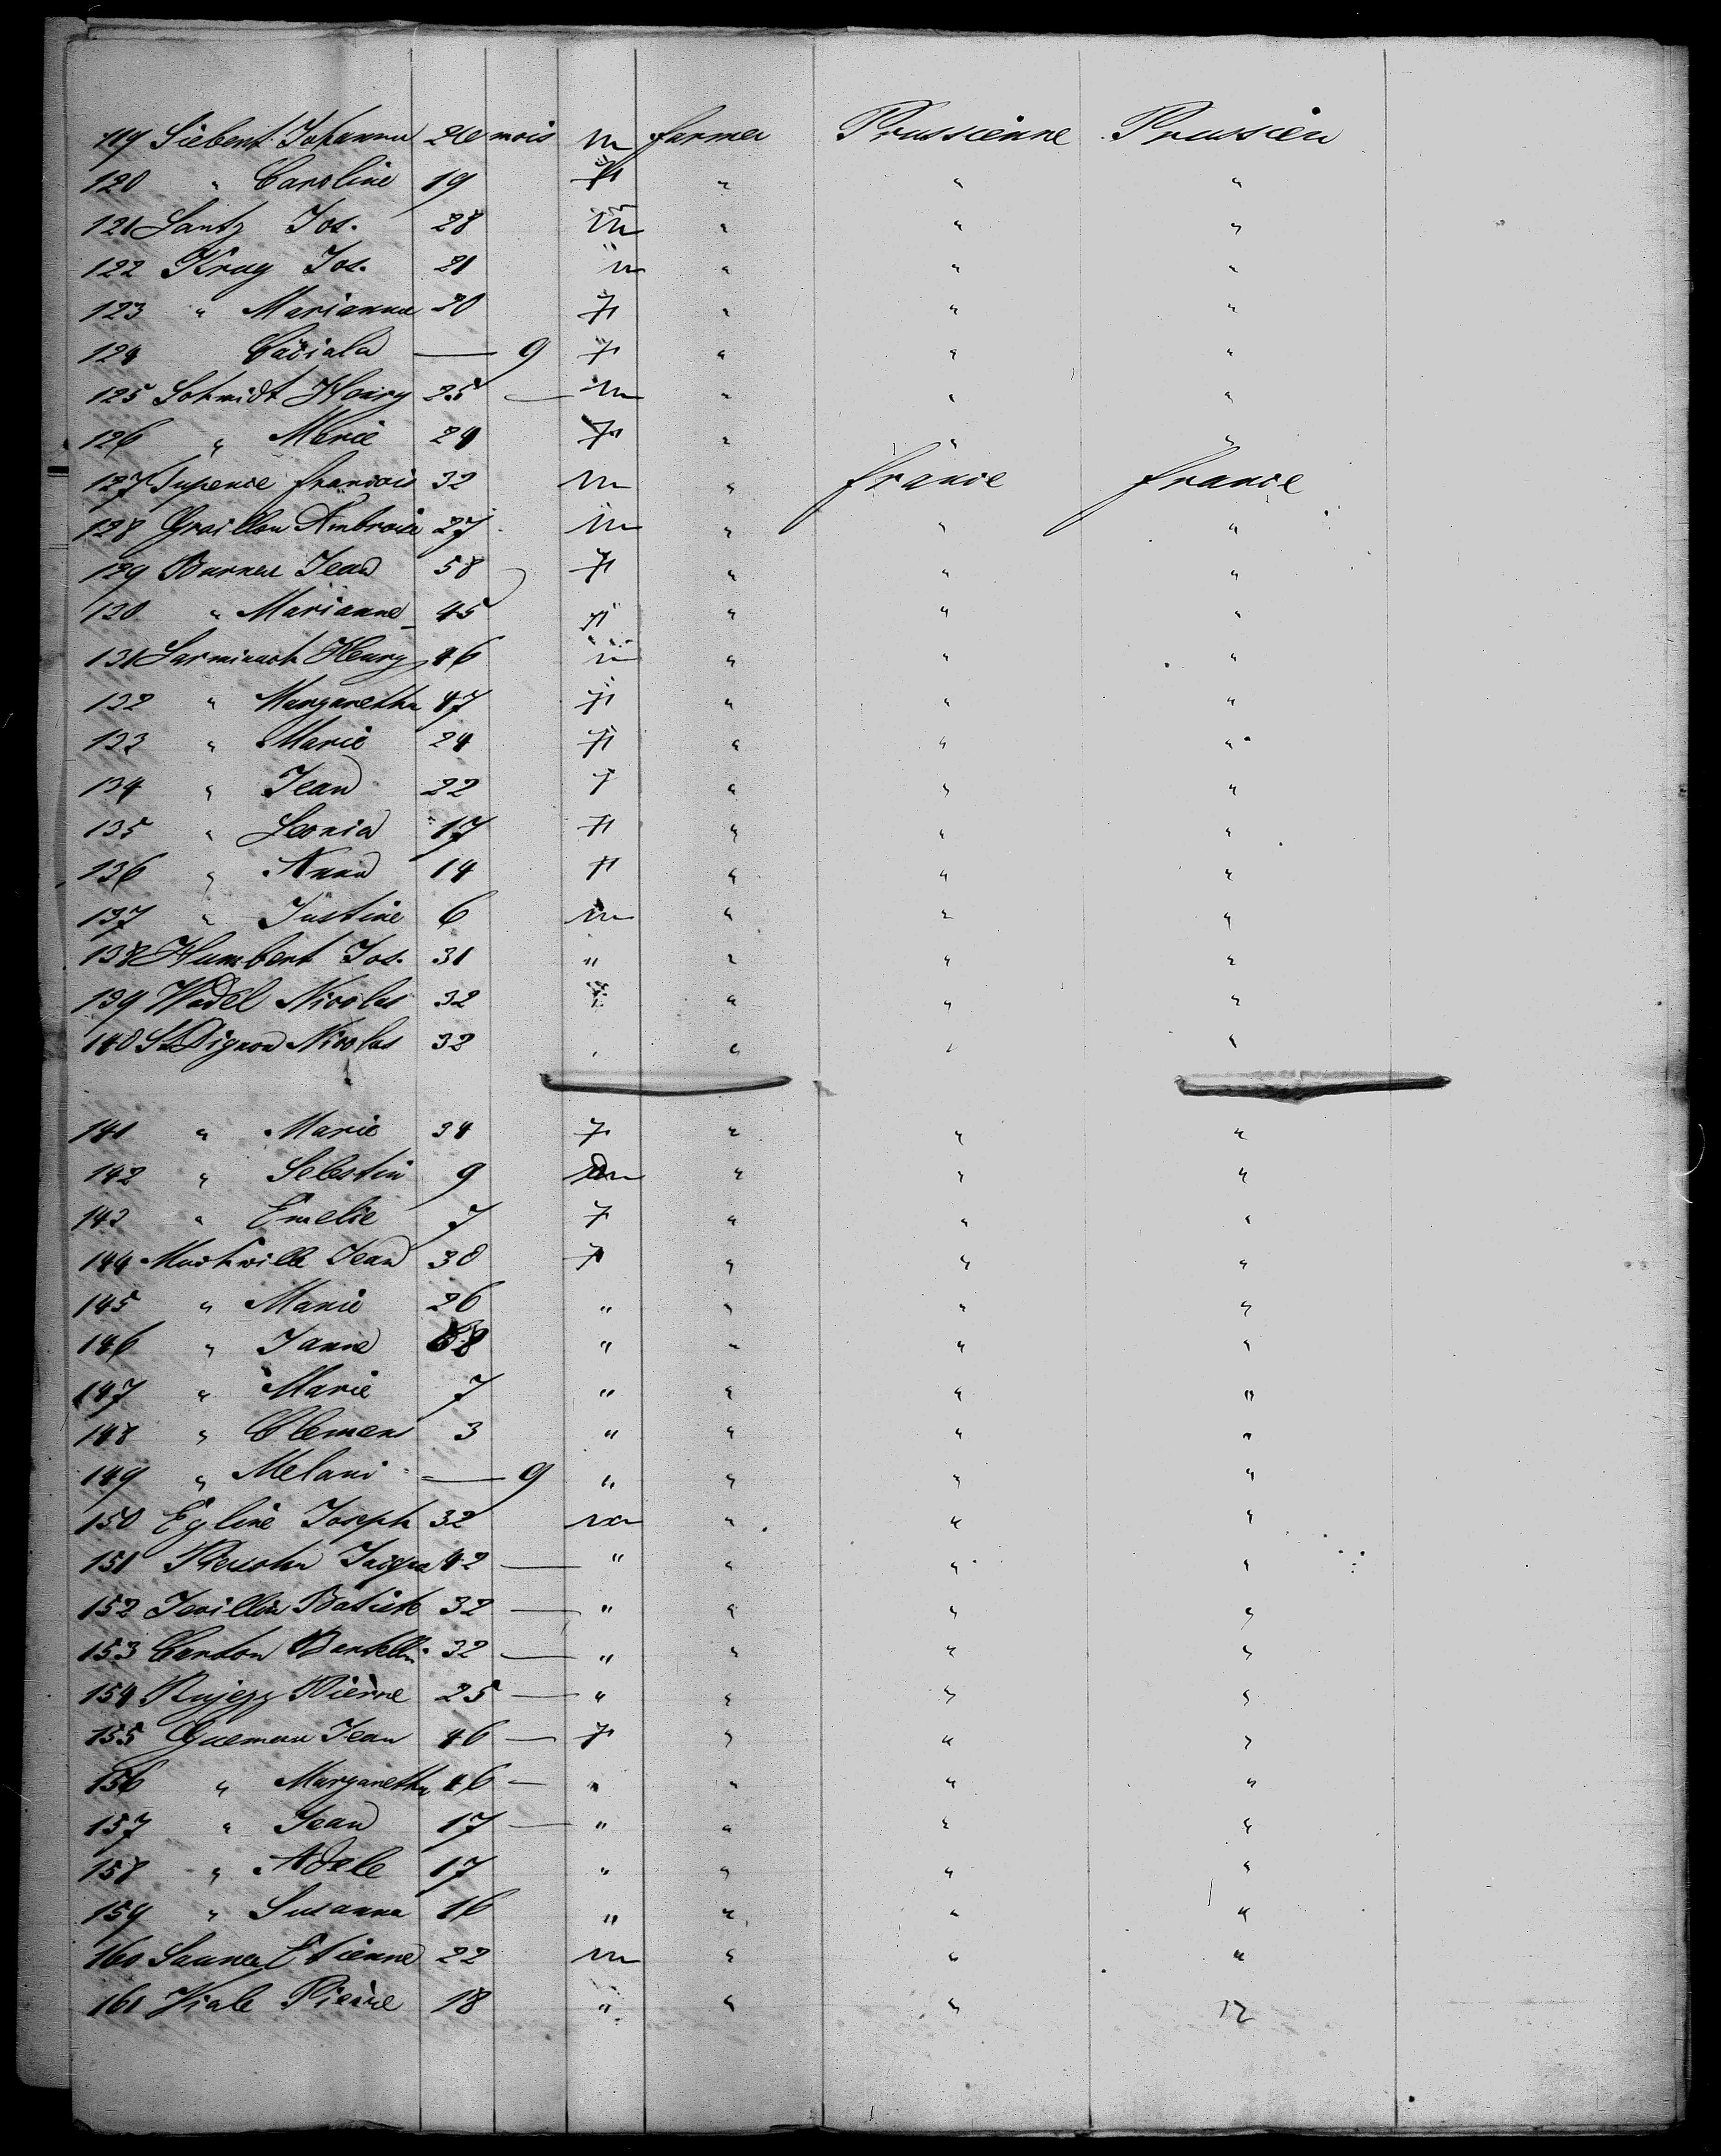 119 Siebent Johanna 20 mois m farmer Prussienne Prussien
120 " Caroline 19 f " " "
121 Lantz Jos. 28 m " " "
122 Krug Jos. 21 m " " "
123 " Marianna 20 f " " "
124 9 f " " "
125 Schmidt Henry 25 — m " " "
126 " Marie 24 f " " "
127 francois 32 m " france france
128 Graillon Ambroise 27 m " " "
129 Jean 58 f " " "
130 " Marianne 45 f " " "
131 Henry 46 m " " "
132 " Margaretha 47 f " " "
133 " Marie 24 f " " "
134 " Jean 22 f " " "
135 " Leonia 17 f " " "
136 " Anna 14 f " " "
137 " Justine 6 m " " "
138 Humbert Jos. 31 " " " "
139 Wadel Nicolas 32 " " " "
140 Nicolas 32 " " " "
141 " Marie 34 f " " "
142 " Selestin 9 m " " "
143 " Emelie 7 f " " "
144 Jean 30 f " " "
145 " Marie 26 " " " "
146 " Janne " " " "
147 " Marie 7 " " " "
148 " Clemens 3 " " " "
149 " Melani — 9 " " " "
150 Egline Joseph 32 m " " "
151 42 — " " " "
152 Batiste 32 — " " " "
153 32 — " " " "
154 Pierre 25 — " " " "
155 Jean 46 — f " " "
156 " Margaretha 46 — " " " "
157 " Jean 17 — " " " "
158 " Adele 17 " " " "
159 " Susanna 16 " " " "
160 Etienne 22 m " " "
161 Viale Pierre 18 " " " "